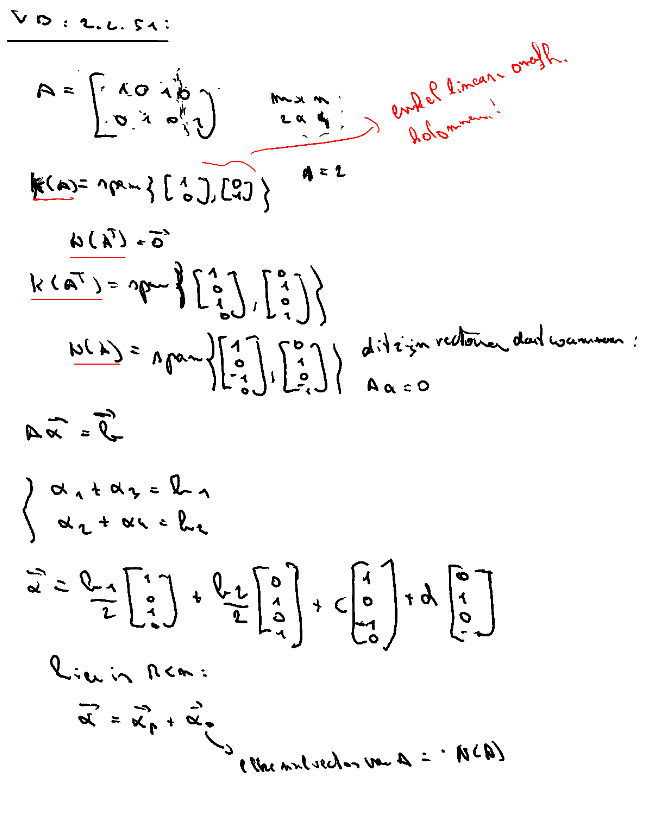 VB: 2.2.51:
A = [1 0 1 0; 0 1 0 1]
m x n:
2 x 4
enkel lineair onafh. kolommen!
K(A) = span{[1; 0], [0; 1]}
r = 2
N(Aᵀ) = 0⃗
K(Aᵀ) = span{[1; 0; 1; 0], [0; 1; 0; 1]}
N(A) = span{[1; 0; -1; 0], [0; 1; 0; -1]} dit zijn vectoren dat wannneer:
A a = 0
A x⃗ = b⃗
{ x₁ + x₃ = b₁
x₂ + x₄ = b₂
x⃗ = b₁/2 [1; 0; 1; 0] + b₂/2 [0; 1; 0; 1] + c [1; 0; -1; 0] + d [0; 1; 0; -1]
hier is
x⃗ = x⃗p + x⃗₀
elke nulvector van A = N(A)